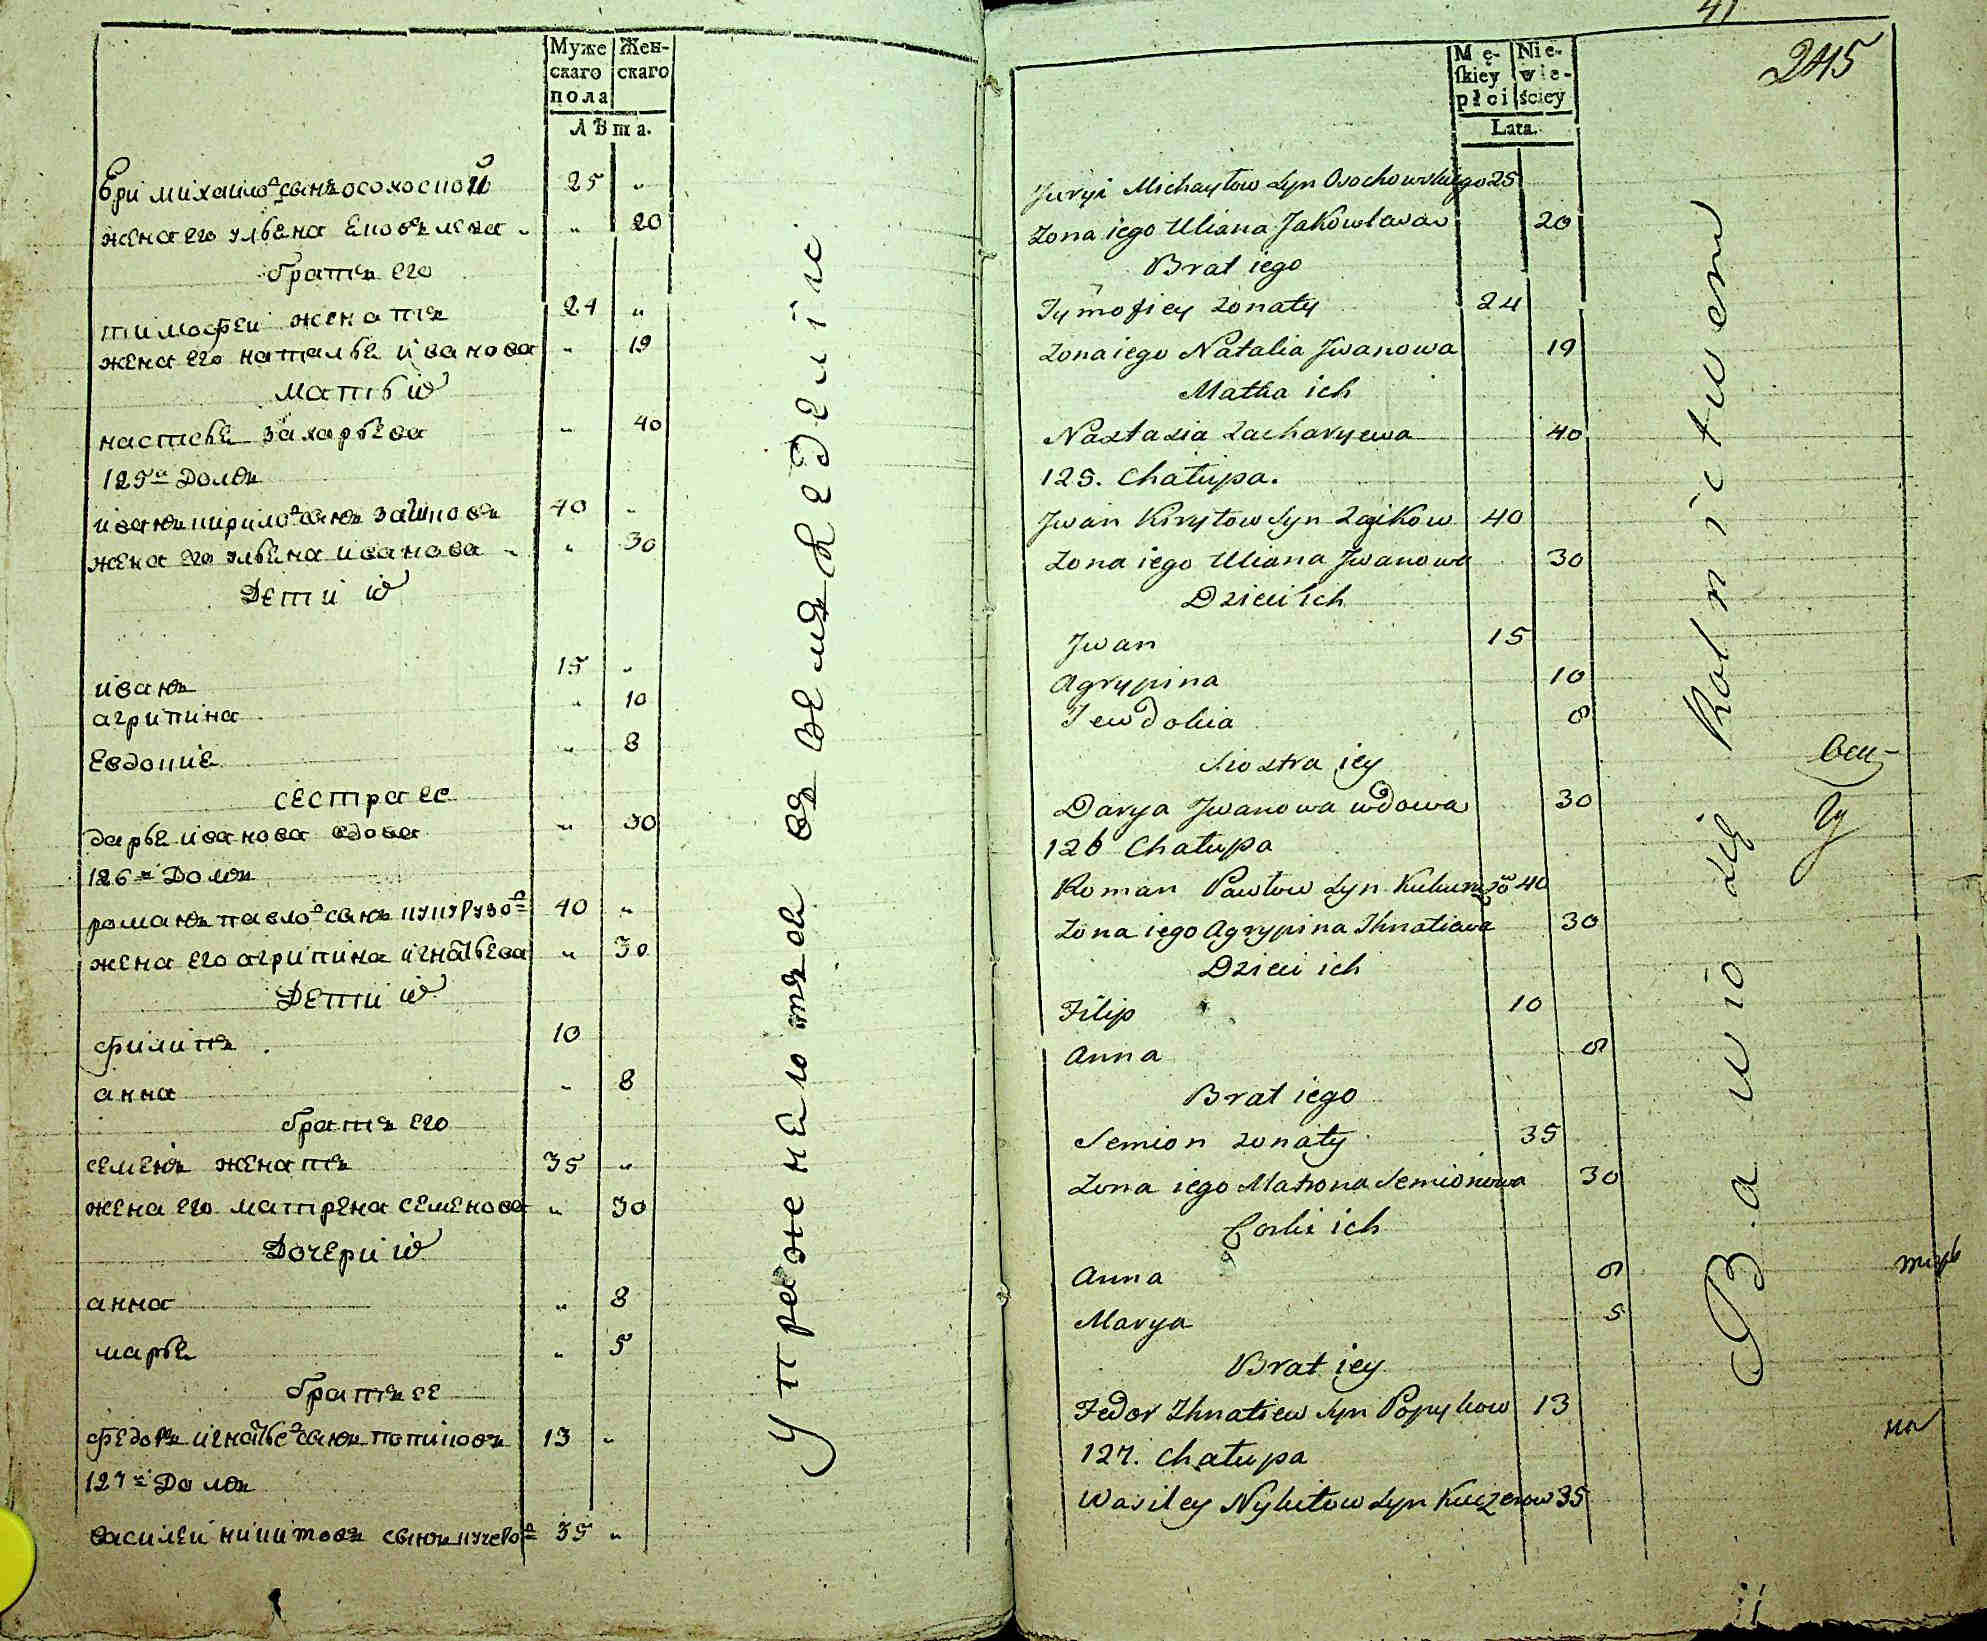 Муже Жен-
скаго скаго
пола
Лѣта.
Ери михаило сынъ осохоской 25 „
жена его ульена Еповлева „ 20
братъ его
тимофеи женатъ 24 „
жена его наталье иванова „ 19
мать и
настасье захарьева „ 40
125 Домъ
иванъ кирило сынъ заиковъ 40 „
жена его ульена иванова „ 30
Дети и
иванъ 15 „
агрипина „ 10
Евдокие „ 8
сестра ее
дарье иванова вдова „ 30
126 Домъ
романъ павло сынъ кукурузо 40 „
жена его агрипина игнатьева „ 30
Дети и
филипъ 10
анна „ 8
братъ его
семенъ женатъ 35 „
жена его матрена семенова „ 30
Дочери и
анна „ 8
марье „ 5
братъ ее
федоръ игнатье сынъ попиковъ 13 „
127 Домъ
василеи никитовъ сынъ кучеро 35 „
Упражнелютсе въ земледеліе
41
245
Mę- Nie-
skiey wie-
płci ściey
Lata.
Juryi Michayłow Syn Osochowskiego 25
Zona iego Uliana Jakowlewa 20
Brat iego
Tymofiey zonaty 24
Zona iego Natalia Jwanowa 19
Matka ich
Nastasia Zacharyewa 40
125. Chałupa.
Jwan Kiryłow Syn Zaikow 40
Zona iego Uliana Jwanowa 30
Dzieci ich
Jwan 15
Agrypina 10
Jewdokia 8
Siostra iey
Darya Jwanowa wdowa 30
126 Chałupa
Roman Pawłow Syn Kukuruzow 40
Zona iego Agrypina Ihnatiewa 30
Dzieci ich
Filip 10
Anna 8
Brat iego
Semion zonaty 35
Zona iego Matrona Semionowa 30
Corki ich
Anna 8
Marya 5
Brat iey
Fedor Ihnatiew Syn Popykow 13
127. Chałupa
Wasiley Nykitow Syn Kuczerow 35
Bawio się Rolnictwem